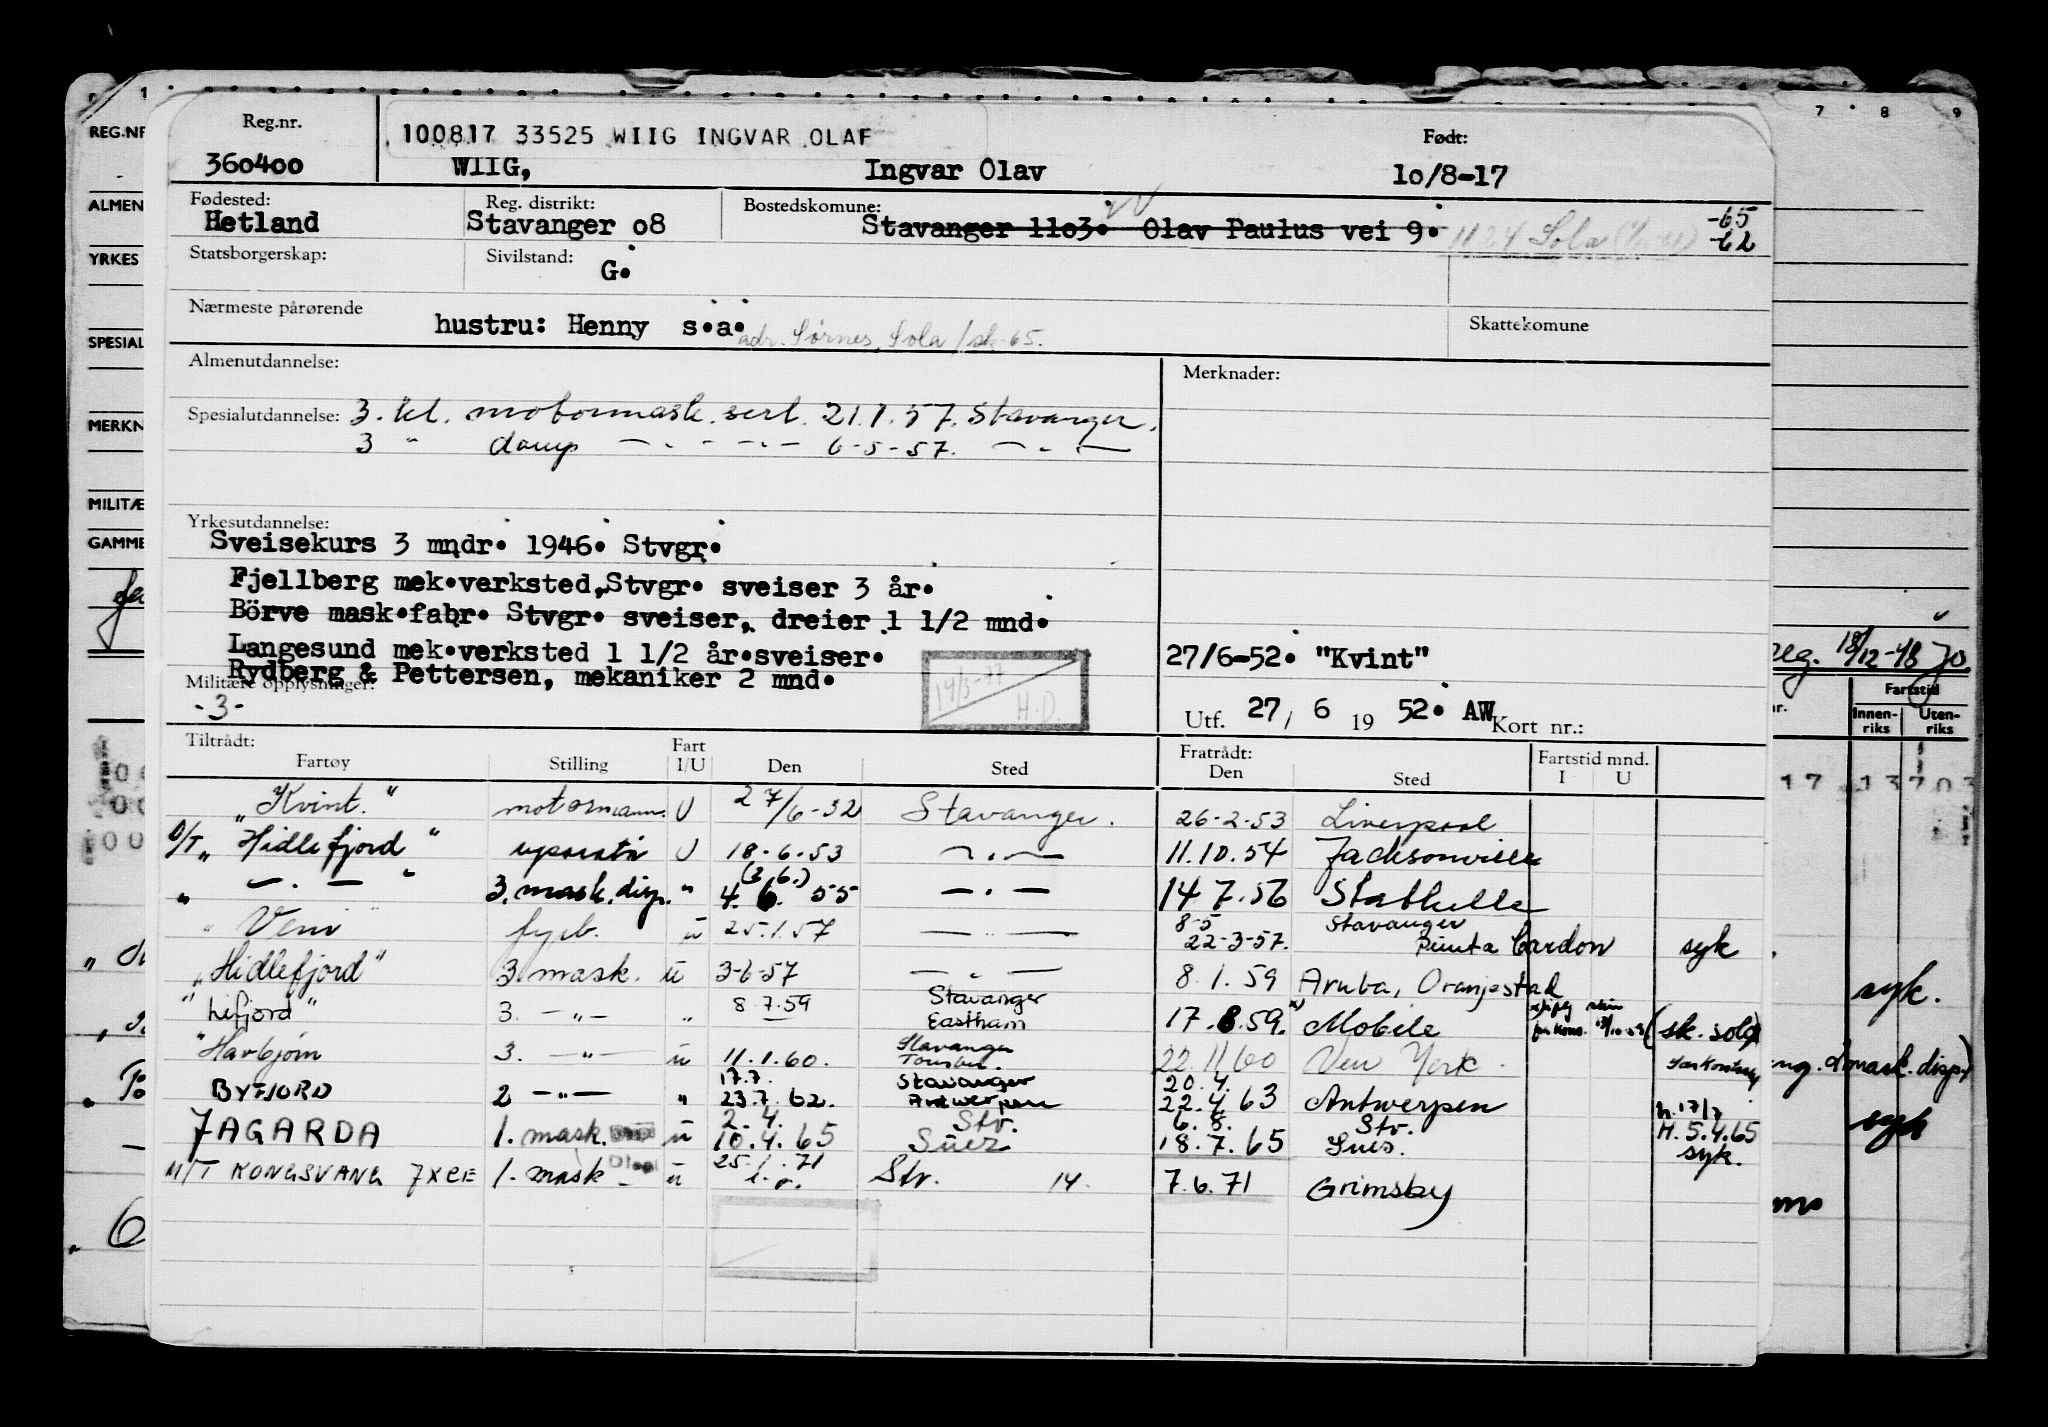 7 8 9
REG.NR
Reg.nr.
100817 33525 WIIG INGVAR OLAF
Født:
360400 WIIG, Ingvar Olav 10/8-17
ALMEN
Fødested: Reg. distrikt: Bostedskomune:
Hetland Stavanger 08 Stavanger 1103. Olav Paulus vei 9. 1124 Sola -65
-62
YRKES
Statsborgerskap: Sivilstand:
G.
Nærmeste pårørende Skattekomune
hustru: Henny s.a.
adr. Sørnes, Sola /sk-65.
SPESIAL
Almenutdannelse: Merknader:
Spesialutdannelse: 3. kl. motormask. sert. 21.1.57. Stavanger.
MERKN
3 " damp — . - - . - 6-5-57. — . —
MILITÆ
Yrkesutdannelse:
GAMME
Sveisekurs 3 mndr. 1946. Stvgr.
Fjellberg mek.verksted, Stvgr. sveiser 3 år.
Börve mask.fabr. Stvgr. sveiser, dreier 1 1/2 mnd.
Langesund mek.verksted 1 1/2 år.sveiser.
27/6-52. "Kvint"
reg. 18/12-48
Rydberg & Pettersen, mekaniker 2 mnd.
Militære opplysninger:
-3-
14/3-77
H.D.
Utf. 27/ 6 19 52. AW Kort nr.:
Fartstid
Innen-riks Uten-riks
Tiltrådt: Fratrådt:
Fartøy Stilling Fart I/U Den Sted Den Sted Fartstid mnd. I U
17 13703
"Kvint." motormann. U 27/6-52 Stavanger. 26-2-53 Liverpool
D/T "Hidlefjord" U 18.6.53 — . — 11.10.54 Jacksonville
" — . — " 3. mask. disp. " (3/6.) 4. 6. 55 — . — 14 7.56 Stathelle
8-5 Stavanger
"Veni" fyrb. ü 25.1.57 — " — 22-3-57. Punta Cardon syk
"Hidlefjord" 3. mask. ü 3-6-57 — " — 8.1.59 Aruba, Oranjestad
syk.
"Lifjord" 3. — " — " 8.7.59 Stavanger
Eastham 17.8.59. x) Mobile (sk. solgt)
"Havbjørn 3. — " — ü 11.1.60. Stavanger
22.11 60 New York.
mask. disp.)
BYFJORD 2 — " — " 17.7. Stavanger 20.4.
23.7.62. Antwerpen 22.4 63 Antwerpen h. 17/7
JAGARDA 1. mask. ü 2.4. Stv. 6.8. Stv. H. 5.4.65
10.4.65 Suez 18.7.65 Suez. syk.
syk
M/T KONGSVANG JXCE 1. mask ü 25.1.71 Stv. 14. 7.6.71 Grimsby